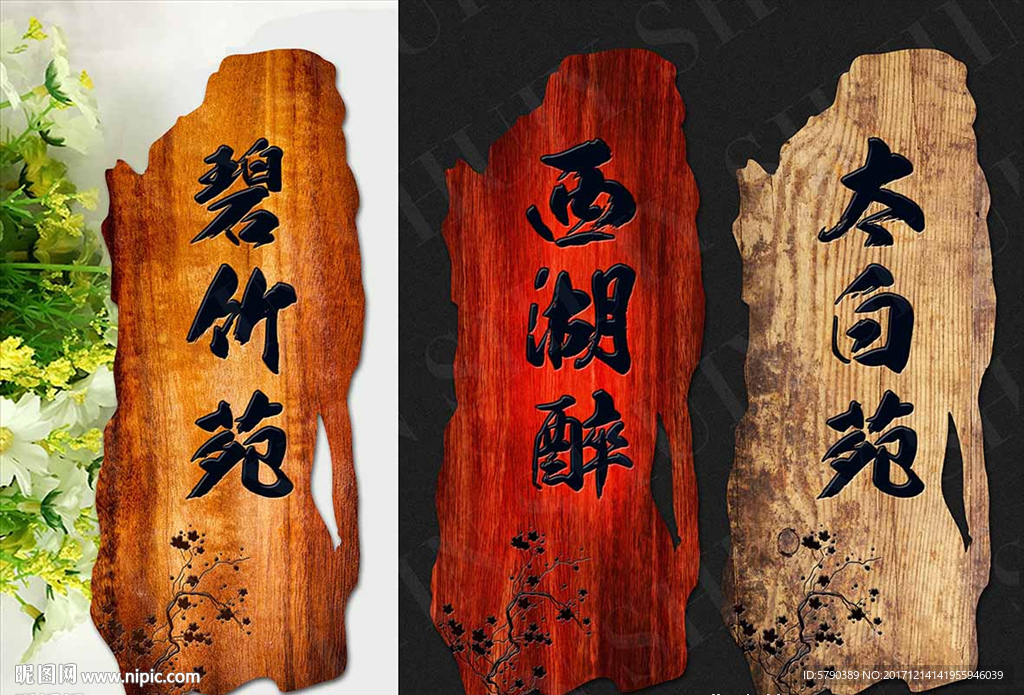 碧竹苑
西湖醉
太白苑
昵图网 www.nipic.com
ID:5790389 NO:20171214141955946039